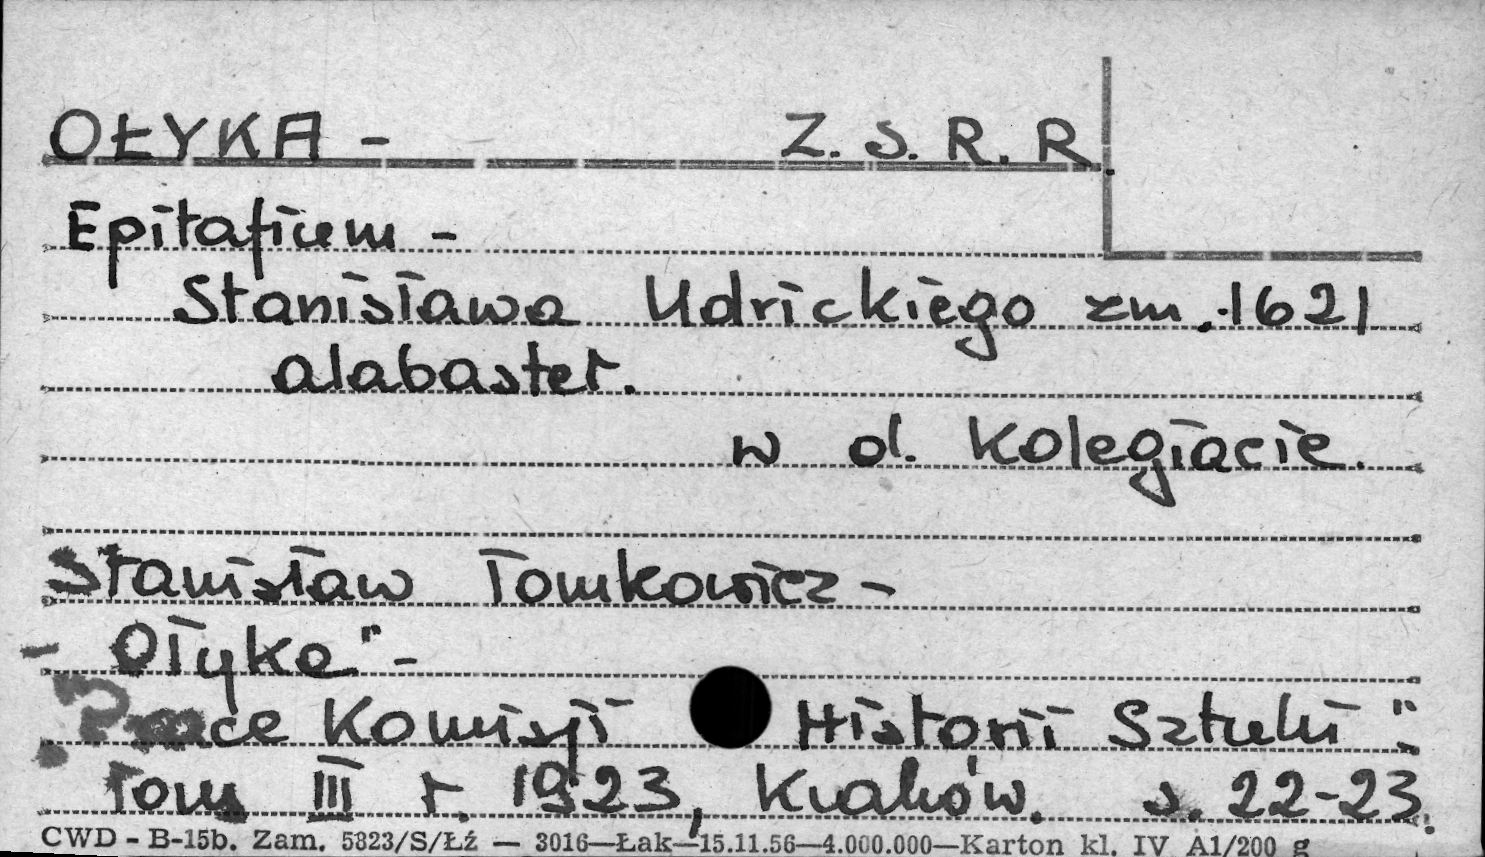 OŁYKA - Z. S. R. R.
Epitafium -
Stanisława Udrickiego zm. 1621
alabaster.
w d. Kolegiacie.
Stanisław Tomkowicz -
- Ołyka" -
Prace Komisji Historii Sztuki".
Tom III r. 1923, Kraków. s. 22-23.
CWD - B-15b. Zam. 5823/S/Łź — 3016—Łak—15.11.56—4.000.000—Karton kl. IV A1/200 g